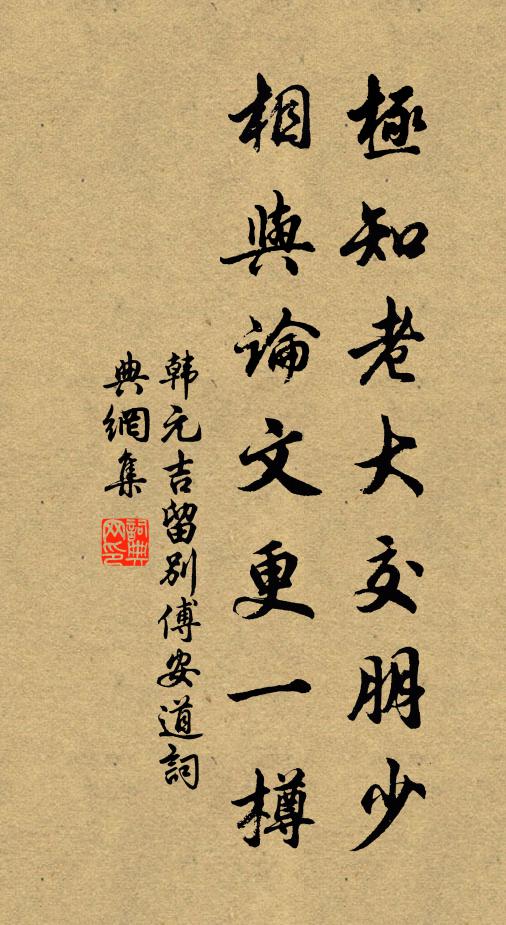 極知老大交朋少
相與論文更一樽
韩元吉留别傅安道詞
典網集
詞典
网印